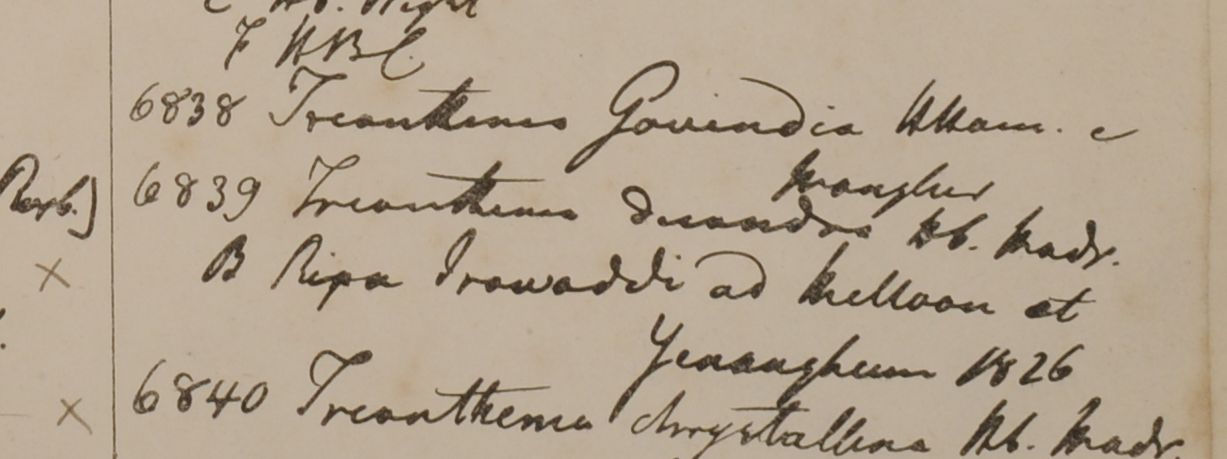 C Hb. Wight
F HBC.
6838 Trianthema Govindia HHam. c
Mongher
Roxb.] 6839 Trianthema decandra Hb. Madr.
B Ripa Irawaddi ad Melloon et
Yenangheum 1826
6840 Trianthema chrystallina Hb. Madr.